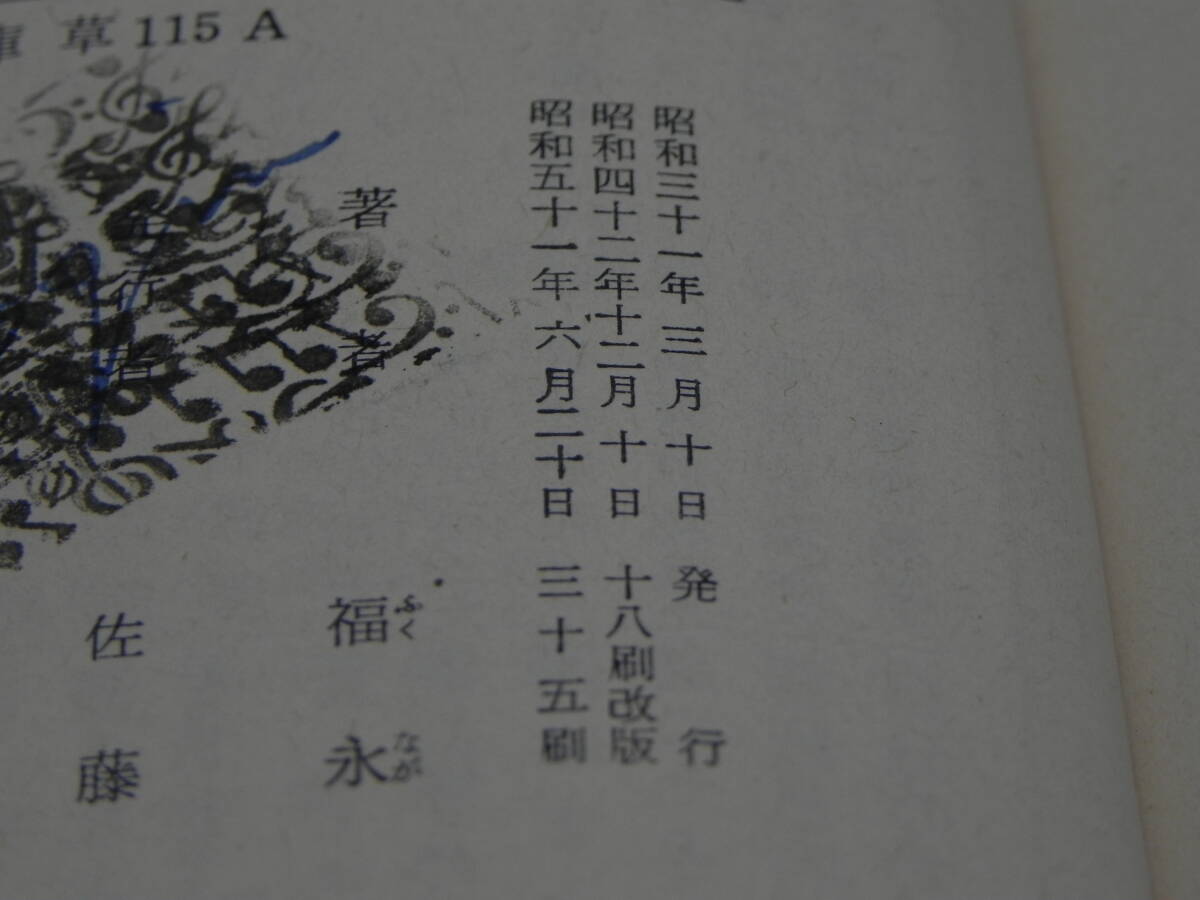 庫 草 115 A
昭和三十一年三月十日 発行
昭和四十二年十二月十日 十八刷改版
昭和五十一年六月二十日 三十五刷
著者 福永
ふく なが
発行者 佐藤